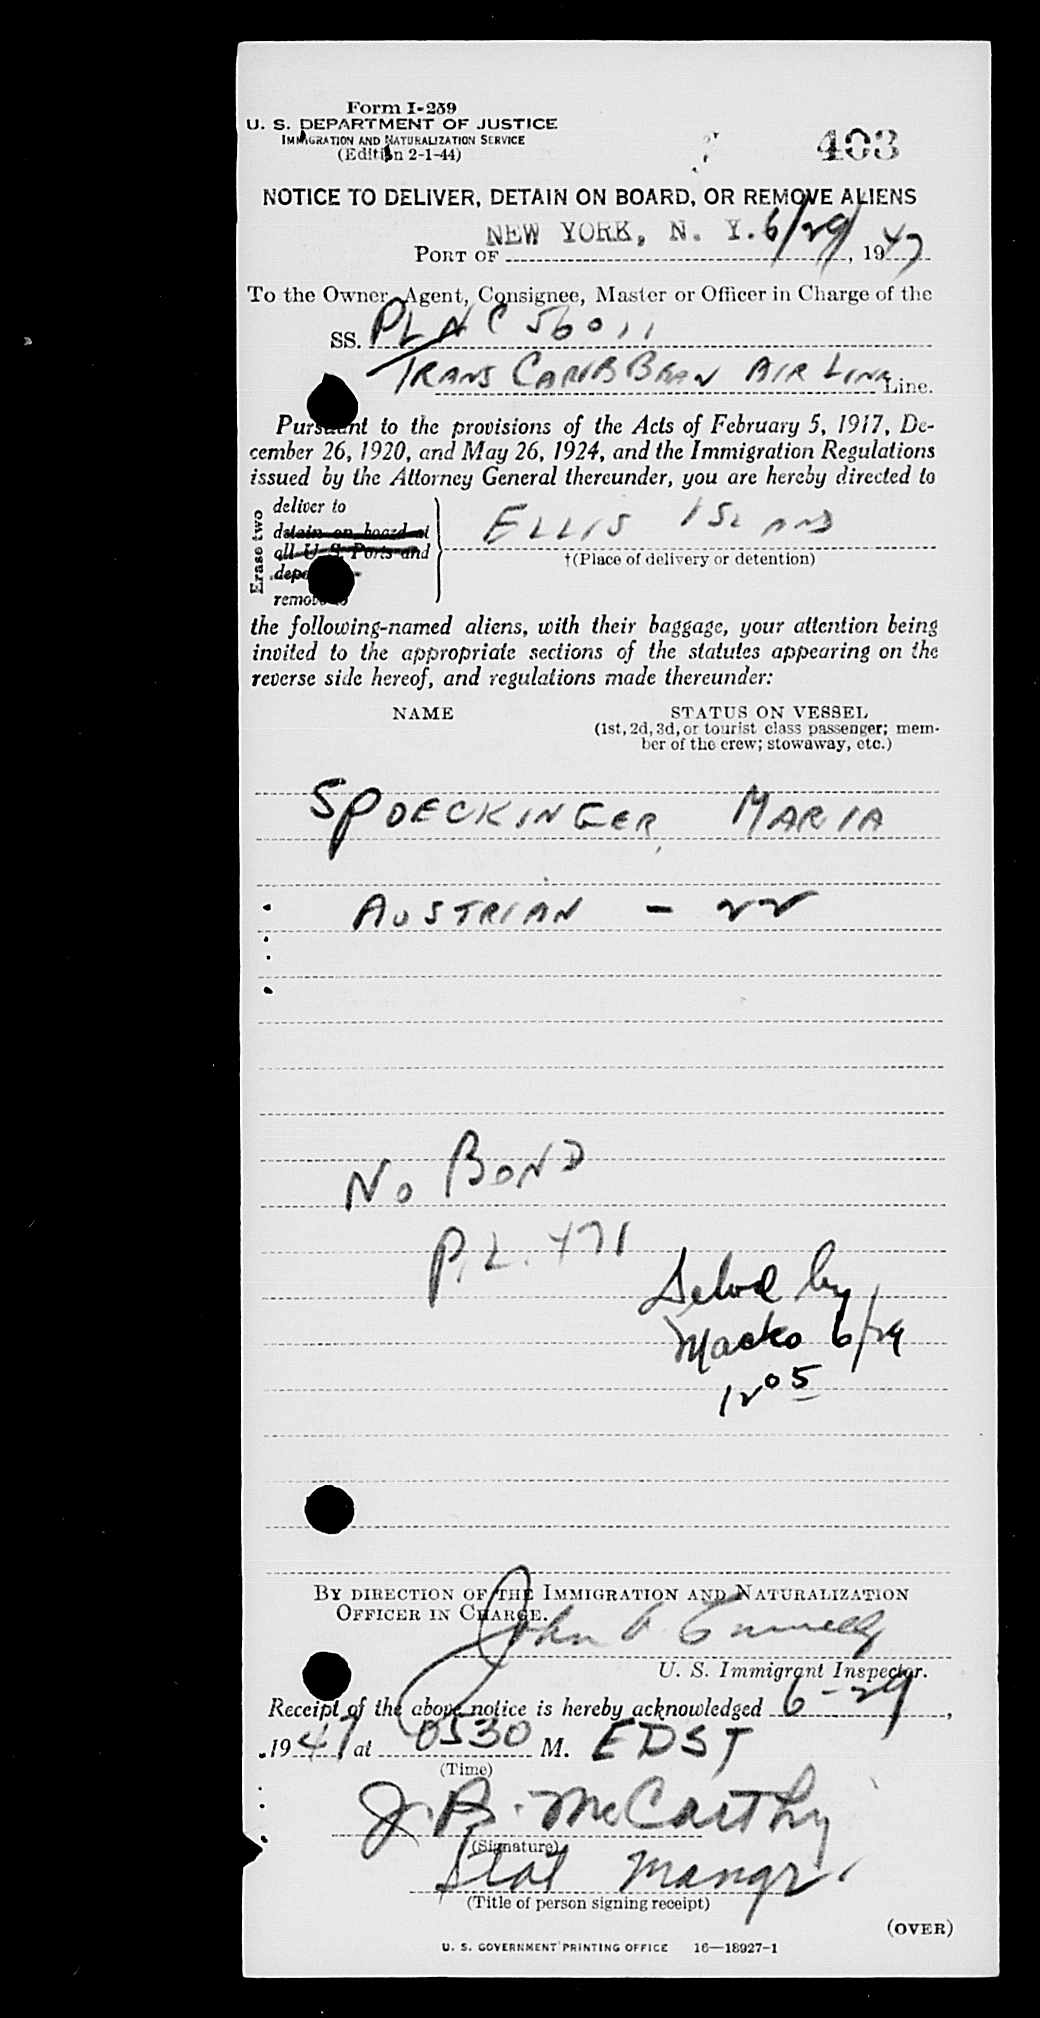 Form I-259
U. S. DEPARTMENT OF JUSTICE
IMMIGRATION AND NATURALIZATION SERVICE
(Edition 2-1-44)
403
NOTICE TO DELIVER, DETAIN ON BOARD, OR REMOVE ALIENS
PORT OF NEW YORK, N. Y. 6/29/, 1947
To the Owner, Agent, Consignee, Master or Officer in Charge of the
SS. PL NC 56011
TRANS CARIBBEAN AIR LINE Line.
Pursuant to the provisions of the Acts of February 5, 1917, De-
cember 26, 1920, and May 26, 1924, and the Immigration Regulations
issued by the Attorney General thereunder, you are hereby directed to
Erase two
deliver to
detain on board at
all U S Ports and
remove to
ELLIS ISLAND
†(Place of delivery or detention)
the following-named aliens, with their baggage, your attention being
invited to the appropriate sections of the statutes appearing on the
reverse side hereof, and regulations made thereunder:
NAME
STATUS ON VESSEL
(1st, 2d, 3d, or tourist class passenger; mem-
ber of the crew; stowaway, etc.)
SPOECKINGER, MARIA
AUSTRIAN - 22
NO BOND
P.L. 471
Delvd by
Macko 6/29
12 05
BY DIRECTION OF THE IMMIGRATION AND NATURALIZATION
OFFICER IN CHARGE.
John
U. S. Immigrant Inspector.
Receipt of the above notice is hereby acknowledged 6-29,
1947 at 0530 M. EDST
(Time)
J. B. McCarthy
(Signature)
Stat Mangr
(Title of person signing receipt)
(OVER)
U. S. GOVERNMENT PRINTING OFFICE 16—18927-1